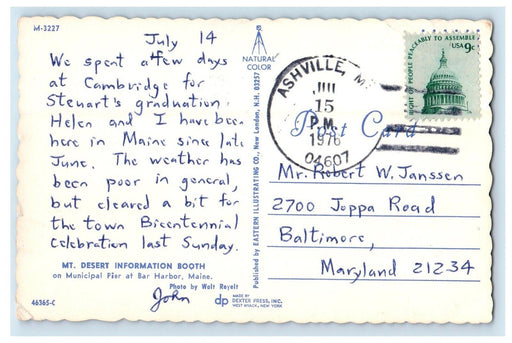 M-3227
July 14
We spent a few days
at Cambridge for
Stewart's graduation.
Helen and I have been
here in Maine since late
June. The weather has
been poor in general,
but cleared a bit for
the town Bicentennial
Celebration last Sunday.
MT. DESERT INFORMATION BOOTH
on Municipal Pier at Bar Harbor, Maine.
Photo by Walt Reyelt
John
46365-C
NATURAL
COLOR
Published by EASTERN ILLUSTRATING CO., New London, N.H. 03257
dp MADE BY
DEXTER PRESS, INC.
WEST NYACK, NEW YORK
ASHVILLE, M
15
P.M.
1976
04607
RIGHT OF PEOPLE PEACEABLY TO ASSEMBLE
USA 9c
Post Card
Mr. Robert W. Janssen
2700 Joppa Road
Baltimore,
Maryland 21234